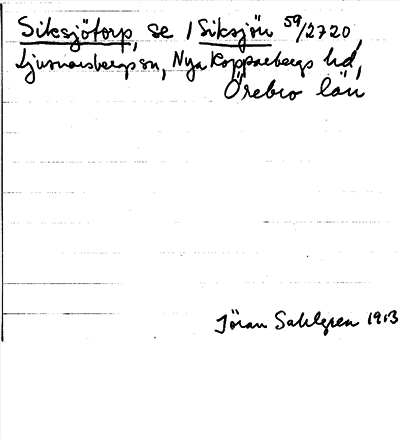 Siksjötorp, se / Siksjön 59/2720,
Ljusnarsbergs sn, Nya Kopparbergs hd,
Örebro län
Jöran Sahlgren 1913